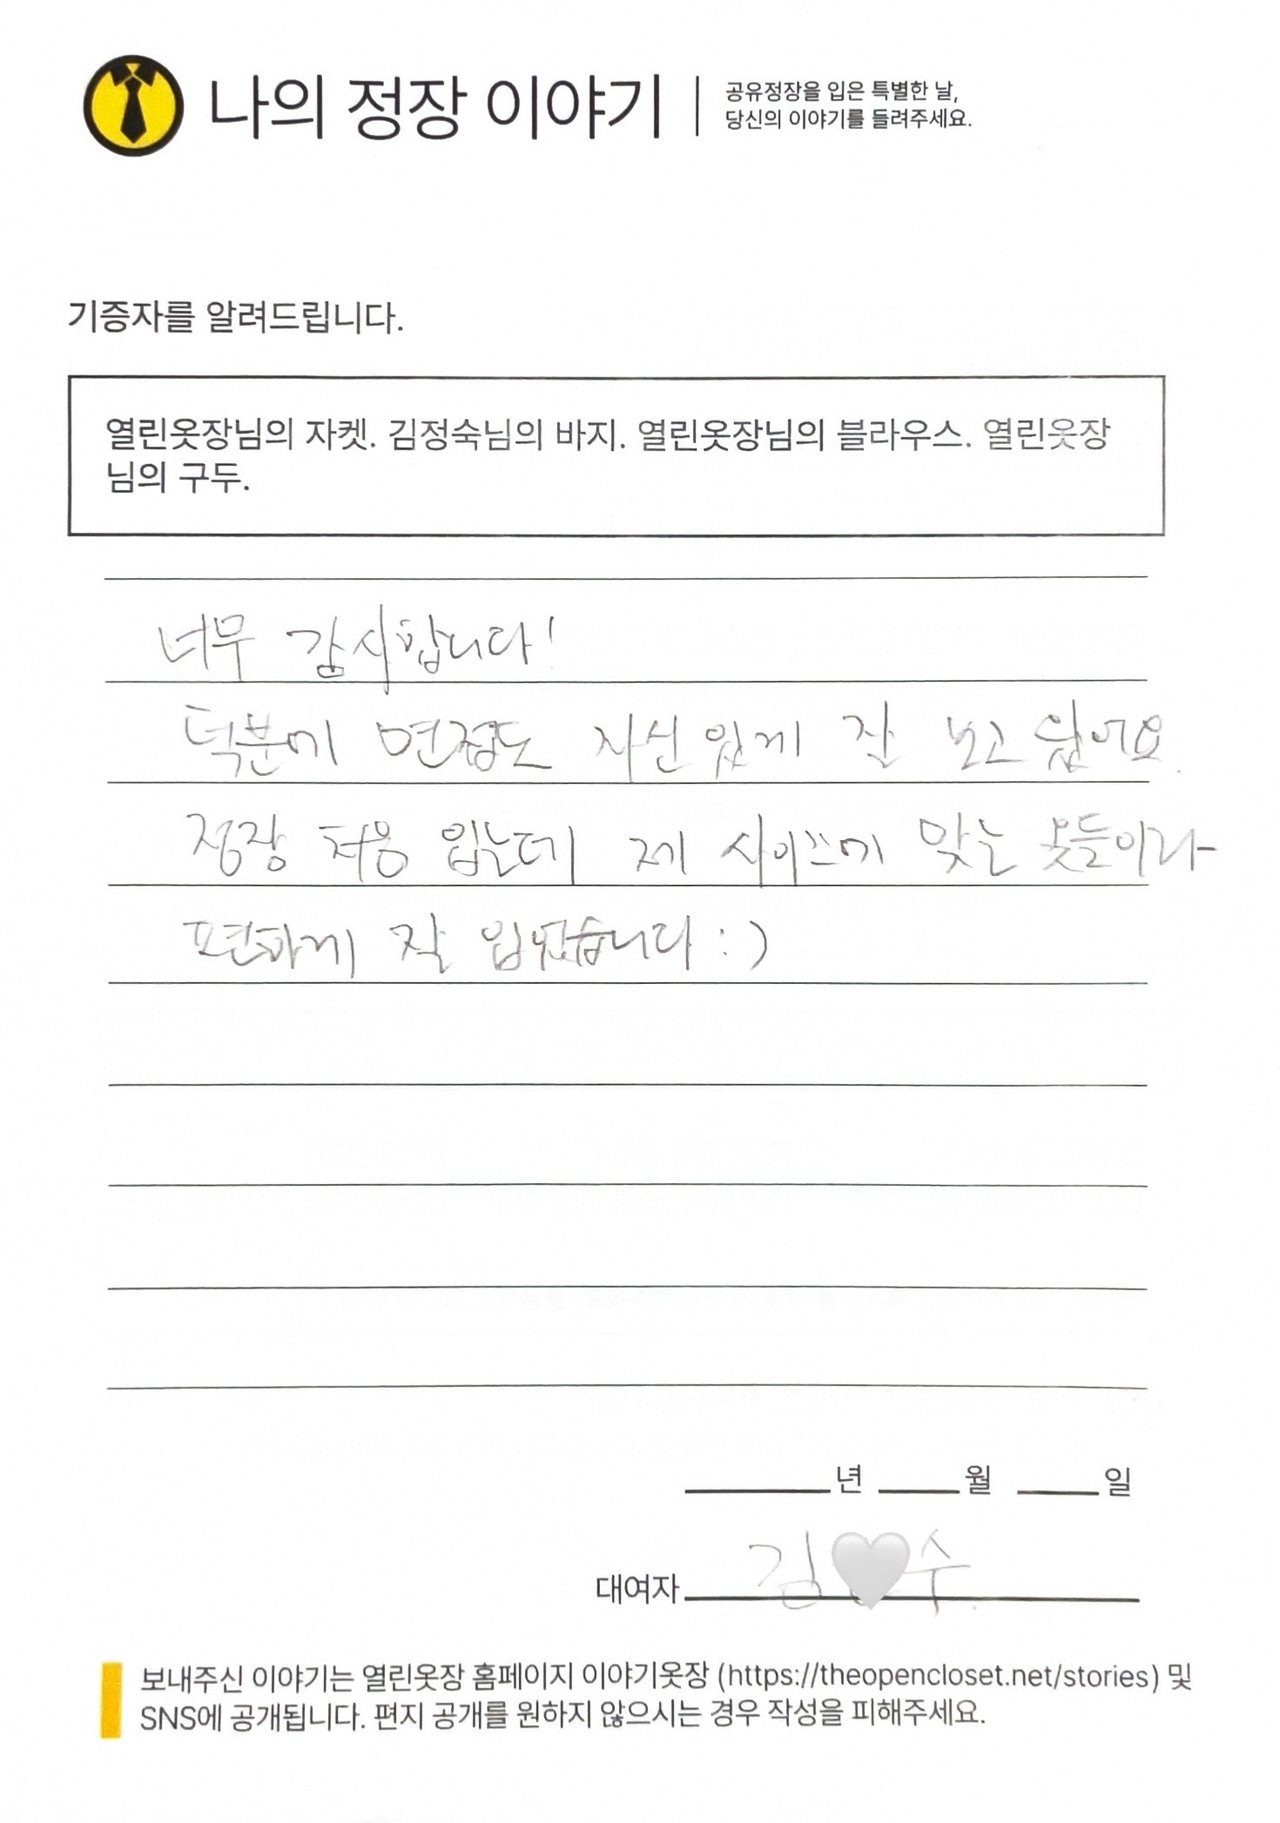 나의 정장 이야기
공유정장을 입은 특별한 날,
당신의 이야기를 들려주세요.
기증자를 알려드립니다.
열린옷장님의 자켓. 김정숙님의 바지. 열린옷장님의 블라우스. 열린옷장
님의 구두.
너무 감사합니다!
덕분에 면접도 자신있게 잘 보고 왔어요.
정장 처음 입는데 제 사이즈에 맞는 옷들이라
편하게 잘 입었습니다 :)
년 월 일
대여자 김 수
보내주신 이야기는 열린옷장 홈페이지 이야기옷장 (https://theopencloset.net/stories) 및
SNS에 공개됩니다. 편지 공개를 원하지 않으시는 경우 작성을 피해주세요.